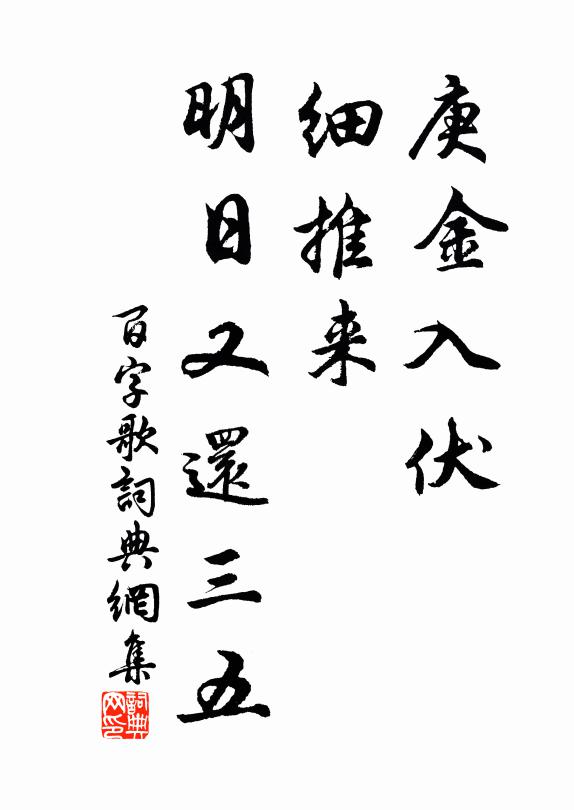 庚金入伏
细推来
明日又還三五
百字歌詞典網集
詞典网印